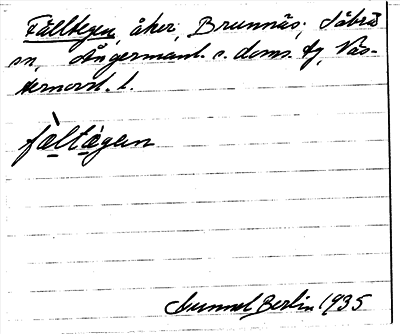 Fälltegen, åker, Brunnäs, Nåbrå
sn, Ångermanl. s. doms. tg, Väs-
ternorrl. l.
fàltágen
Gunnel Berlin 1935